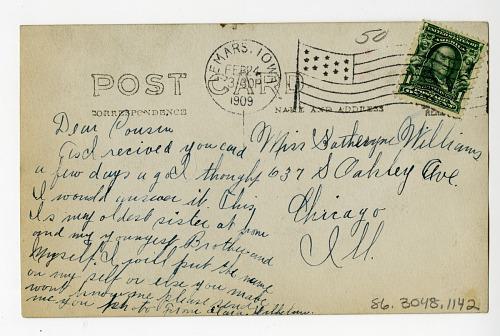 50
LEMARS, IOWA
FEB 24
1909
POST CARD
CORRESPONDENCE
NAME AND ADDRESS
Dear Cousin
As I recived you card
a few days ago I thought
I would answer it. This
is my oldest sister at home
and my youngest Brother and
Myself. I will put the name
on my self or else you maby
wont know me please send
me you photo From Clara
Miss Katheryne Williams
637 S Oakley Ave.
Chicago
Ill.
86.3048.1142